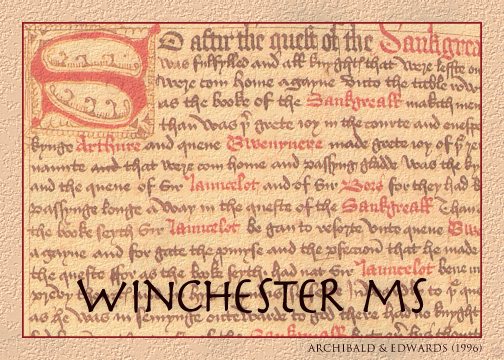 So aftir the quest of the Sankgrea
was fulfylled and all knyghtes that were leffte on
were com home agayne vnto the table row
as the booke of the Sankgreall makith men
than was þe grete ioy in the courte and enespe
kynge Arthure and quene Gwenyuere made grete ioy of þe re
naunte that were com home and passyng gladde was the ky
and the quene of Sir Launcelot and of Sir Bors for they had b
passynge longe a way in the queste of the Sankgreall Than
the booke seyth Sir Launcelot be gan to resorte vnto quene Gw
a gayne and for gate the and the that he made
the queste ffor as the book seyth had nat Sir Launcelot bene in
WINCHESTER MS
ARCHIBALD & EDWARDS (1996)